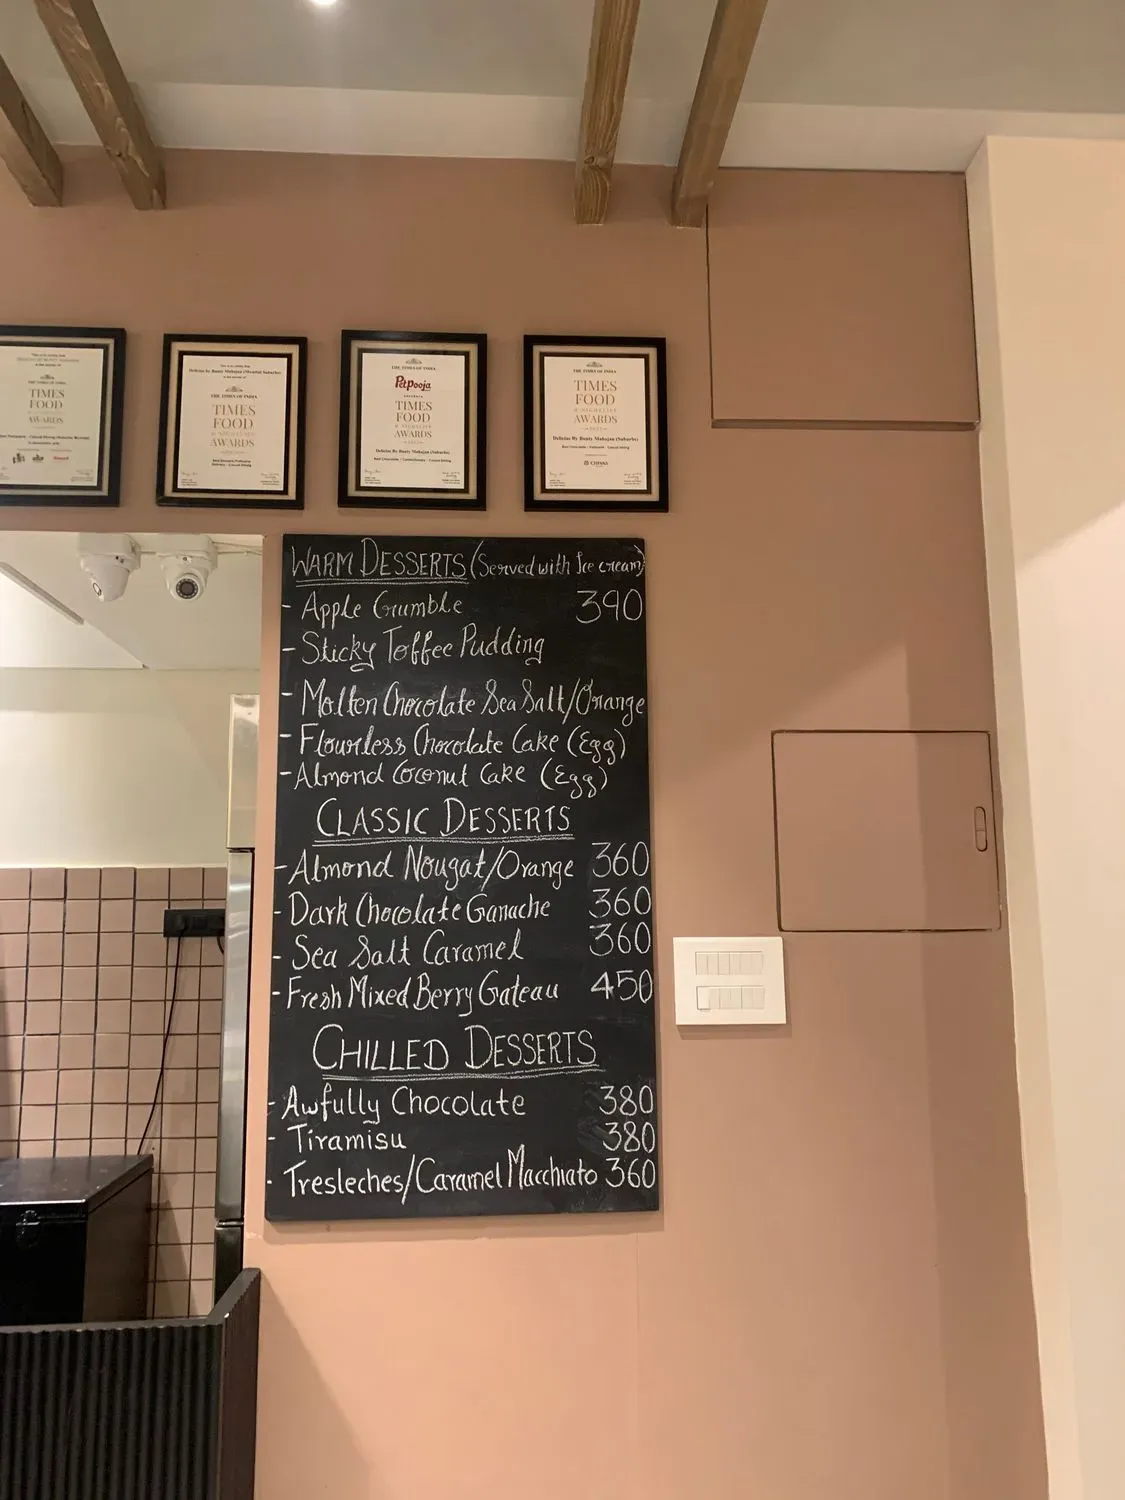 THE TIMES OF INDIA
TIMES
FOOD
AWARDS
Delicias by Bunty Mahajan
THE TIMES OF INDIA
TIMES
FOOD
& NIGHTLIFE
AWARDS
THE TIMES OF INDIA
PetPooja
TIMES
FOOD
& NIGHTLIFE
AWARDS
Delicias By Bunty Mahajan (Suburbs)
THE TIMES OF INDIA
TIMES
FOOD
& NIGHTLIFE
AWARDS
Delicias By Bunty Mahajan (Suburbs)
WARM DESSERTS (Served with Ice cream)
- Apple Crumble 390
- Sticky Toffee Pudding
- Molten Chocolate Sea Salt/Orange
- Flourless Chocolate Cake (Egg)
- Almond Coconut Cake (Egg)
CLASSIC DESSERTS
- Almond Nougat/Orange 360
- Dark Chocolate Ganache 360
- Sea Salt Caramel 360
- Fresh Mixed Berry Gateau 450
CHILLED DESSERTS
- Awfully Chocolate 380
- Tiramisu 380
- Tresleches/Caramel Macchiato 360